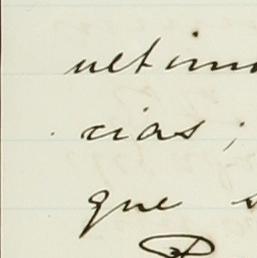 ultim
cias;
que s